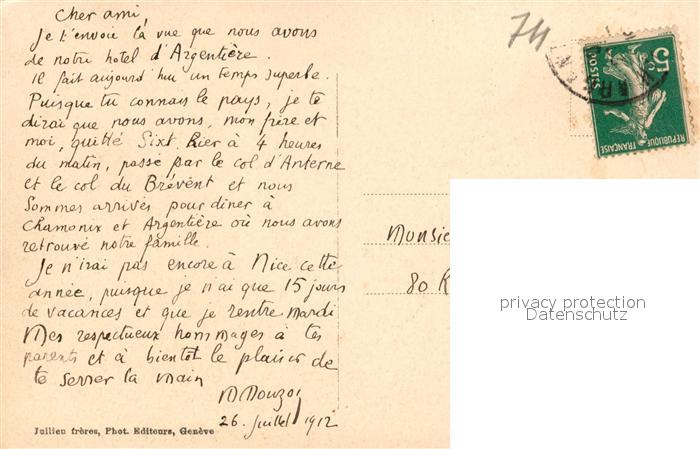 Cher ami,
Je t'envoie la vue que nous avons
de notre hotel d'Argentière.
Il fait aujourd'hui un temps superbe.
Puisque tu connais le pays, je te
dirai que nous avons, mon frère et
moi, quitté Sixt, hier à 4 heures
du matin, passé par le col d'Anterne
et le col du Brévent et nous
sommes arrivés pour diner à
Chamonix et Argentière où nous avons
retrouvé notre famille.
Je n'irai pas encore à Nice cette
année, puisque je n'ai que 15 jours
de vacances et que je rentre mardi
Mes respectueux hommages à tes
parents et à bientot le plaisir de
te serrer la main
26. Juillet 1912
Jullien frères, Phot. Editeurs, Genève
74
5c
POSTES
REPUBLIQUE FRANÇAISE
Monsie
80 R
privacy protection
Datenschutz